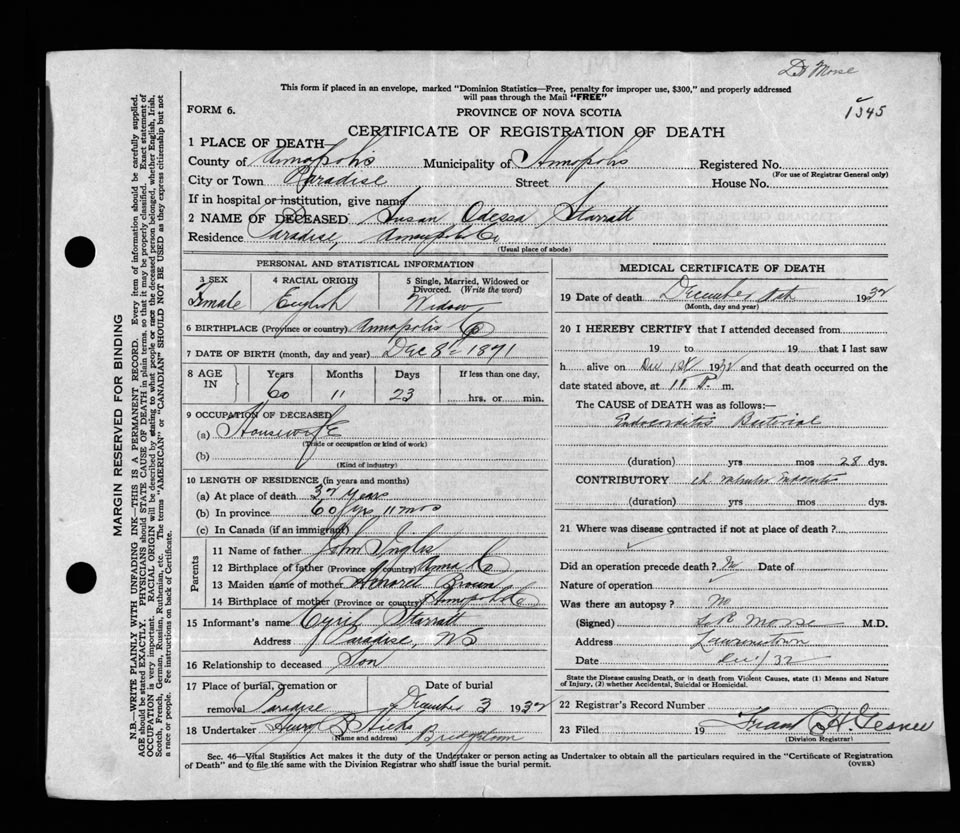 Dr Morse
This form if placed in an envelope, marked "Dominion Statistics—Free, penalty for improper use, $300," and properly addressed
will pass through the Mail "FREE"
1345
FORM 6.
PROVINCE OF NOVA SCOTIA
CERTIFICATE OF REGISTRATION OF DEATH
1 PLACE OF DEATH
County of Annapolis Municipality of Annapolis Registered No.
(For use of Registrar General only)
City or Town Paradise Street House No.
If in hospital or institution, give name
2 NAME OF DECEASED Susan Odessa Starratt
Residence Paradise, Annapolis Co
(Usual place of abode)
PERSONAL AND STATISTICAL INFORMATION
3 SEX 4 RACIAL ORIGIN 5 Single, Married, Widowed or
Divorced. (Write the word)
Female English Widow
6 BIRTHPLACE (Province or country) Annapolis Co
7 DATE OF BIRTH (month, day and year) Dec 8th 1871
8 AGE IN Years Months Days If less than one day,
60 11 23 hrs. or min.
9 OCCUPATION OF DECEASED
(a) Housewife
(Trade or occupation or kind of work)
(b)
(Kind of industry)
10 LENGTH OF RESIDENCE (in years and months)
(a) At place of death 37 years
(b) In province 60 yrs 11 mos
(c) In Canada (if an immigrant)
Parents
11 Name of father John Inglis
12 Birthplace of father (Province or country) Anna Co
13 Maiden name of mother Brown
14 Birthplace of mother (Province or country) Annapolis Co
15 Informant's name Cyril Starratt
Address Paradise, NS
16 Relationship to deceased Son
17 Place of burial, cremation or Date of burial
removal Paradise December 3 1932
18 Undertaker Henry B Hicks
(Name and address) Bridgetown
MEDICAL CERTIFICATE OF DEATH
19 Date of death December 1st 1932
(Month, day and year)
20 I HEREBY CERTIFY that I attended deceased from
19 to 19 that I last saw
h alive on Dec 1st 1932 and that death occurred on the
date stated above, at 11 P. m.
The CAUSE of DEATH was as follows:—
Endocarditis Bacterial
(duration) yrs mos 28 dys.
CONTRIBUTORY ch
(duration) yrs mos dys.
21 Where was disease contracted if not at place of death?
Did an operation precede death? No Date of
Nature of operation
Was there an autopsy? No
(Signed) Morse M.D.
Address Lawrencetown
Date Dec 1/32
State the Disease causing Death, or in death from Violent Causes, state (1) Means and Nature
of Injury, (2) whether Accidental, Suicidal or Homicidal.
22 Registrar's Record Number
23 Filed 19 Frank H.
(Division Registrar)
Sec. 46—Vital Statistics Act makes it the duty of the Undertaker or person acting as Undertaker to obtain all the particulars required in the "Certificate of Registration
of Death" and to file the same with the Division Registrar who shall issue the burial permit.
(OVER)
MARGIN RESERVED FOR BINDING
N.B.—WRITE PLAINLY WITH UNFADING INK—THIS IS A PERMANENT RECORD. Every item of information should be carefully supplied.
AGE should be stated EXACTLY. PHYSICIANS should STATE CAUSE OF DEATH in plain terms, so that it may be properly classified. Exact statement of
OCCUPATION is very important. RACIAL ORIGIN will be described by stating to what people or race the deceased person belonged, whether English, Irish,
Scotch, French, German, Russian, Ruthenian, etc. The terms "AMERICAN" or "CANADIAN" SHOULD NOT BE USED as they express citizenship but not
a race or people. See instructions on back of Certificate.